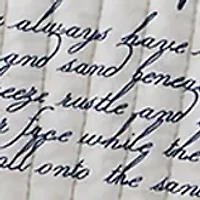 always have
and sand benea
eeze rustle and
r free while the
all onto the sand